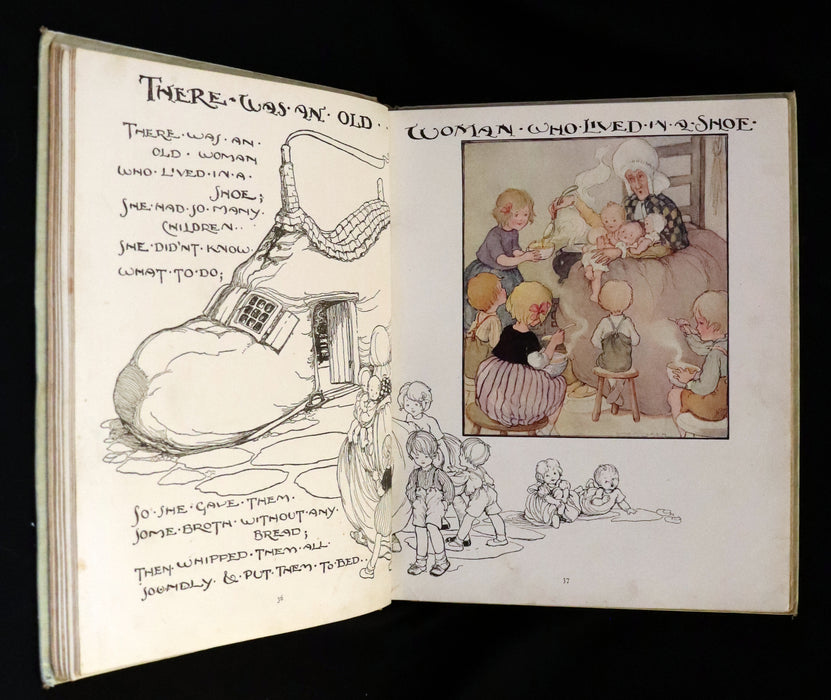 THERE·WAS·AN·OLD·
WOMAN·WHO·LIVED·IN·A·SHOE·
THERE·WAS·AN·
OLD·WOMAN
WHO·LIVED·IN·A·
SHOE;
SHE·HAD·SO·MANY·
CHILDREN··
SHE·DID'NT·KNOW·
WHAT·TO·DO;
SO·SHE·GAVE·THEM·
SOME·BROTH·WITHOUT·ANY·
BREAD;
THEN·WHIPPED·THEM·ALL·
SOUNDLY·&·PUT·THEM·TO·BED··
36
37